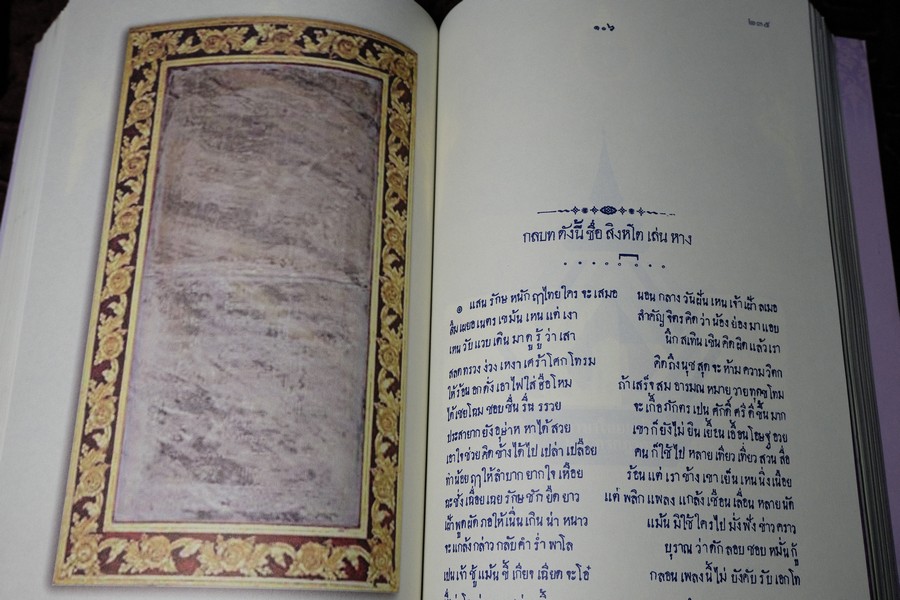 ๑๑๖ ๒๓๕
กลบท ดังนี้ ชื่อ สิงหโต เล่น หาง
๏ แสน รักษ หนัก ฤๅไทยใคร จะ เสมอ นอน กลาง วันฝัน เหน เจ้า เฝ้า ลเมอ
ลืม เผยอ เนตร เขม้น เหน แต่ เงา สำคัญ จิตร คิด ว่า น้อง ย่อง มา แอบ
เหน วับ แวบ เดิน มา ดู รู้ ว่า เสา นึก สเทิน เขิน คิด ผิด แล้ว เรา
สลด ทรวง ง่วง เหงา เศร้า โศก โทรม คิด ถึง นุช สุด จะ ห้าม ความ วิตก
ให้ ร้อน อก ดั่ง เอา ไฟ ใส่ ฮือ โหม ถ้า เสร็จ สม อารมณ หมาย วาย
ได้ เชย โฉม ชอบ ชื่น รื่น รรวย จะ เกื้อ ภักตร เปน ศักดิ์ ศรี ดี ขึ้น มาก
ประสา ยาก ยัง อุส่าห หา ได้ สวย เขา ก็ ยัง ไม่ ยิน เยื้อน เอื้อน โอษฐ อวย
เอา ใจ ช่วย คิด ช้าง ได้ ไป เปล่า เปลื้อย คน ก็ ใช้ ไป หลาย เที่ยว เที่ยว สวน สื่อ
ทำ น้อย ฤๅ ให้ ลำบาก ยาก ใจ เหื้อย ร้อน แต่ เรา ข้าง เขา เย็น เหน นิ่ง เนือย
ฉะ ชั่ง เฉื่อย เฉย รักษ ชัก ยืด ยาว แต่ พลิก แพลง แกล้ง เชือน เลื่อน หลาย นัด
เฝ้า พูด ผัด ภอ ให้ เนิ่น เกิน น่า หนาว แม้น มิ ใช้ ใคร ไป มั่ง ฟัง ข่าว คราว
จะ แกล้ง กล่าว กลับ คำ ร่ำ พาโล บุราณ ว่า ดัก ลอบ ชอบ หมั่น กู้
เปน เจ้า ชู้ แม้น ขี้ เกียจ เฉียด จะ โอ๋ กลอน เพลง นี้ ไม่ บังคับ รับ เอก โท